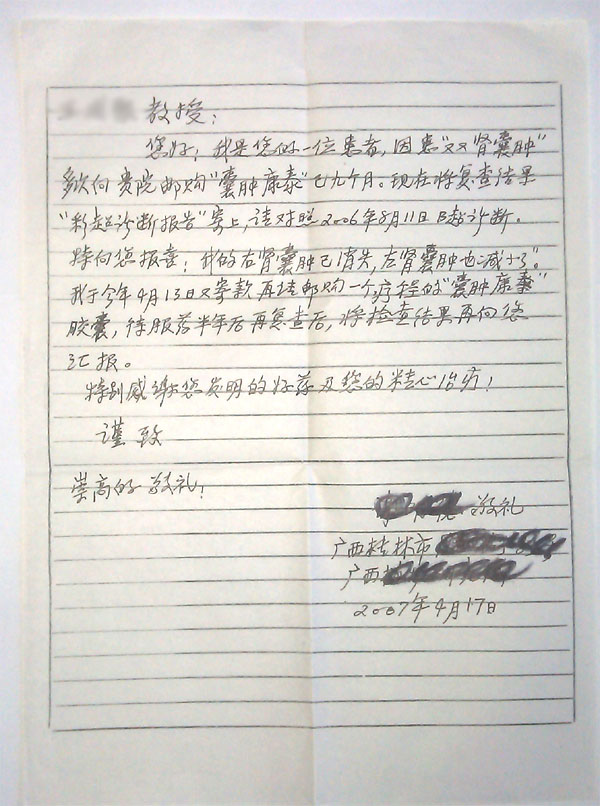 教授：
您好！我是您的一位患者，因患“双肾囊肿”
多次向贵院邮购“囊肿康泰”已九个月。现在将复查结果
“彩超诊断报告”寄上，请对照2006年8月11日B超诊断。
特向您报喜：我的右肾囊肿已消失，左肾囊肿也减小了。
我于今年4月13日又寄款再请邮购一个疗程的“囊肿康泰”
胶囊，待服药半年后再复查后，将检查结果再向您
汇报。
特别感谢您发明的好药及您的精心治疗！
谨致
崇高的敬礼！
敬礼
广西桂林市
广西
2007年4月17日